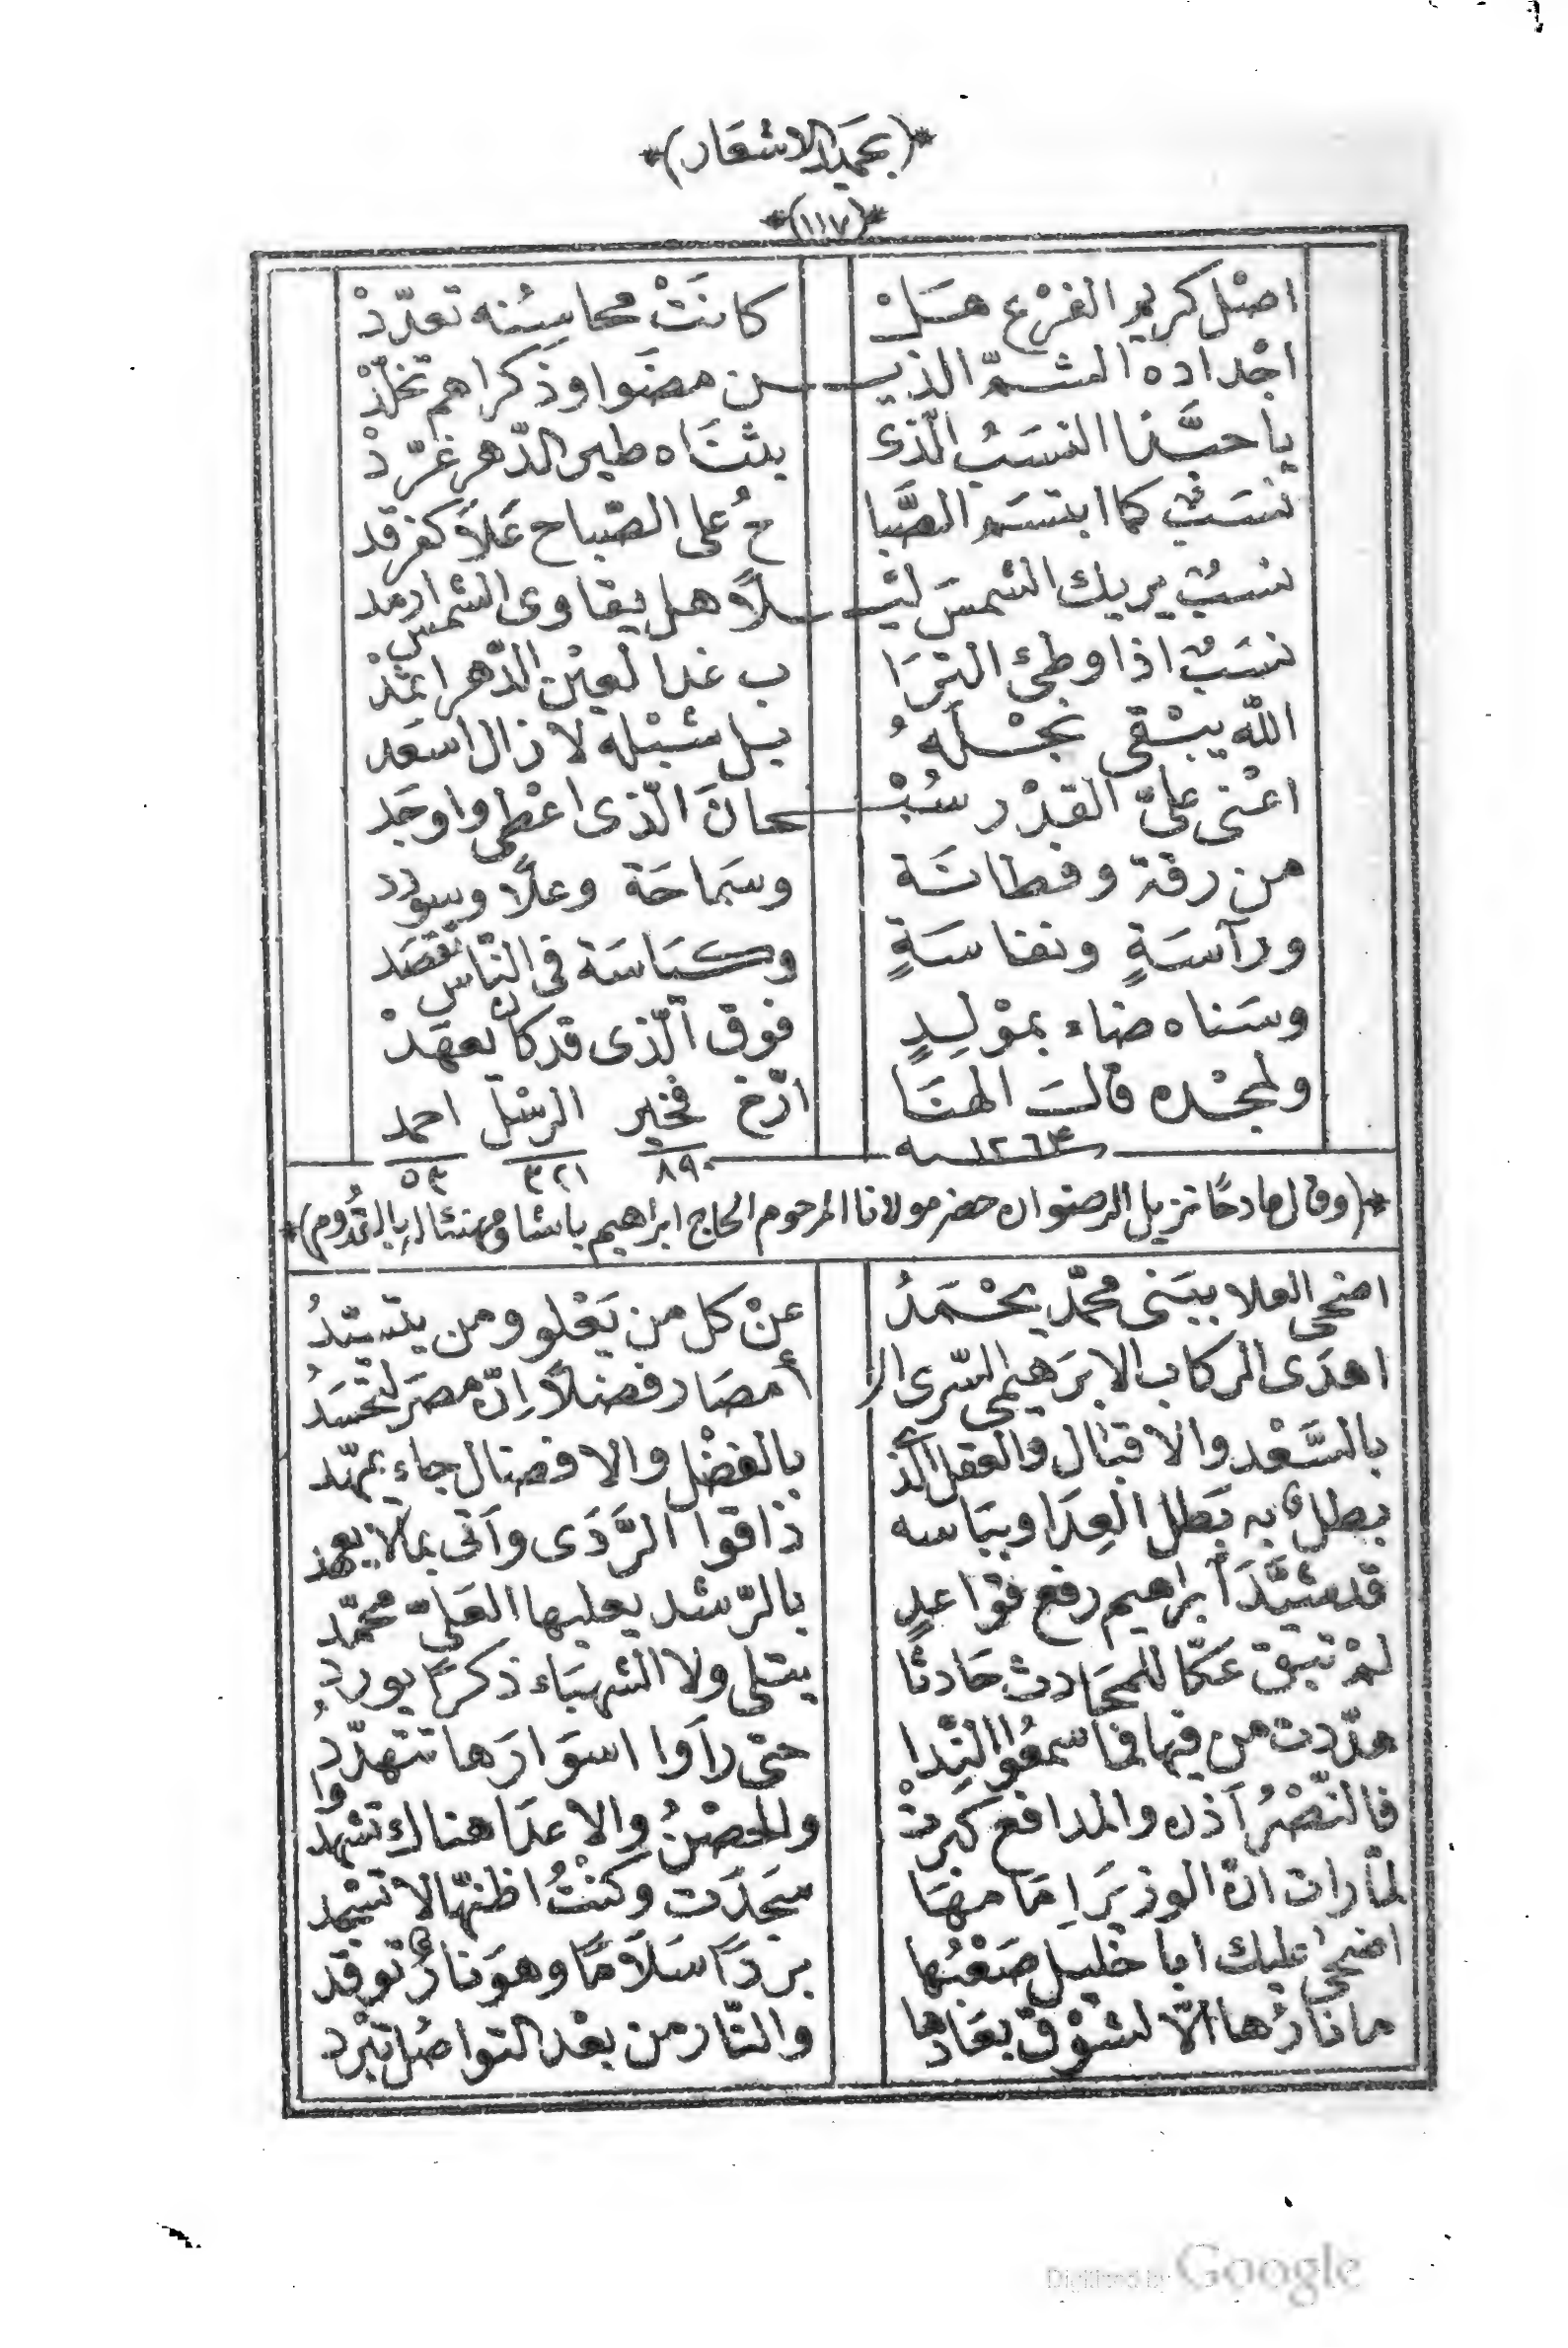 *(بحميد الاشعار)*
*(١١٧)*
اصْل كريم الفرْع هَلْ كانَتْ محاسِنُه تعدّدْ
اجْداده الشمّ الذيـ ـن مضَوا وذَكراهم تخلّدْ
يا حبَّذا النسَبُ الّذى بثنَاه طير الدّهر غرّدْ
نسَبٌ كما ابتسَم الصَّبا حُ على الصّباح عَلاً كفرقد
نسبٌ يريك الشمسَ ليْـ ـلاً وهل يقاوى الشمس ارمد
نسَبٌ اذا وطئ الترَا ب غدا لعيْن الدّهر اثمدْ
اللّه يبْقى نجْلَهُ بل شبْله لا زال اسعَد
اعْنى علىّ القدْر سُبْـ ـحانَ الّذى اعْطى واوجَد
من رقة وفطانَة وسَماحَة وعلًا وسودد
ورآسَةٍ ونفاسَةٍ وكيَاسَة فى النّاس تقصَد
وسَناه ضاء بموْلِدٍ فوق الّذى قد كان يعهَدْ
ولمجْده قالت الهنَا ارّخ فخير الرسْل احمد
سنة ١٢٦٤ ٨٩٠ ٣٢١ ٥٣
*(وقال مادحًا نزيل الرضوان حضر مولانا المرحوم الحاج ابراهيم باشا ومهنئا له بالقُدُوم)*
اضحى العلا ببَنى محمّد يحْمَدُ عنْ كل من يَعْلو ومن يتسيّدُ
اهدَى الركاب الابرَهيمى السّرى الا أمصَار فضلاً اِنّ مصرَ لتحْسَدُ
بالسَّعْد والاقبَال والعقل الّذى بالفضْل والافضال جاء يمهّد
بطلٌ به بَطل العِدَا وببَاسه ذاقوا الرَّدَى وآتى بمالا يعهد
قد شيَّدَ ابراهيم رفع قوَاعدٍ بالرّشد يعليها العَلىّ محمّد
لمْ تبق عَكّا للمحَادث حَادثا يتلى ولا الشهبَاء ذكرًا يوردُ
هدّدت من فيها فما سمعُوا النِدا حتى رآوا اسوَارَها تتهدّدُ
فالنّصْرُ آذن والمدافع كبرتْ والحصْنُ والاعدَا هناك تشهدُوا
لمّا رات انّ الوزيرَ اِمَامهَا سجَدَت وكنْتُ اظنّها لا تسْجد
اضحى عليك ابا خليل صَعْبُها برَدًا سَلَامًا وهوَ نارٌ توقد
ما نارُها الّا لشوْق بعَادِها والنّار من بعْد التواصُل تبْرد
Digitized by Google